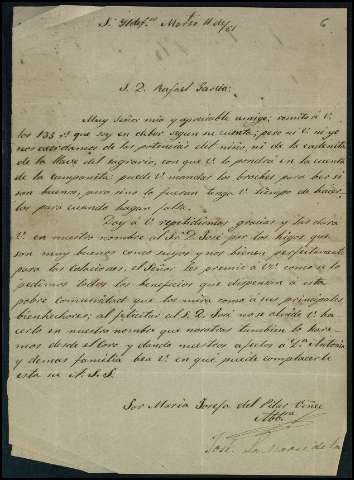 Sn Yldefso Marzo 11 de/61
6
S. D. Rafael Garcia.
Muy Señor mio y apreciable amigo; remito á V.
los 133 rs que soy en deber segun su cuenta; pero ni V. ni yo
nos acordamos de las potencias del niño, ni de la cadenita
de la llave del sagrario, con que V. lo pondrá en la cuenta
de la campanita; puede V. mandar los broches para ber si
son buenos, pero sino lo fueran tenga V. tiempo de hacer
los para cuando hagan falta.
Doy á V. repetidisimas gracias y las dará
V. en nuestro nombre al Sr. D. José por los higos que
son muy buenos como suyos y nos bienen perfectamente
para las colaciones, el Señor les premie á VV. como se lo
pedimos todos los beneficios que dispensan á esta
pobre comunidad que los mira como á sus principales
bienhechores; al felicitar al S. D. José no se olvide V. ha-
cerlo en nuestro nombre que nosotras tambien lo hare-
mos desde el Coro y dando nuestros afectos á Da. Antonia
y demas familia bea V. en qué puede complacerle
esta su A. S. S.
Sor Maria Josefa del Pilar
Abb.sa
José